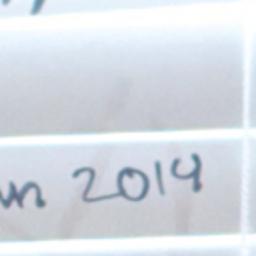 un 2014